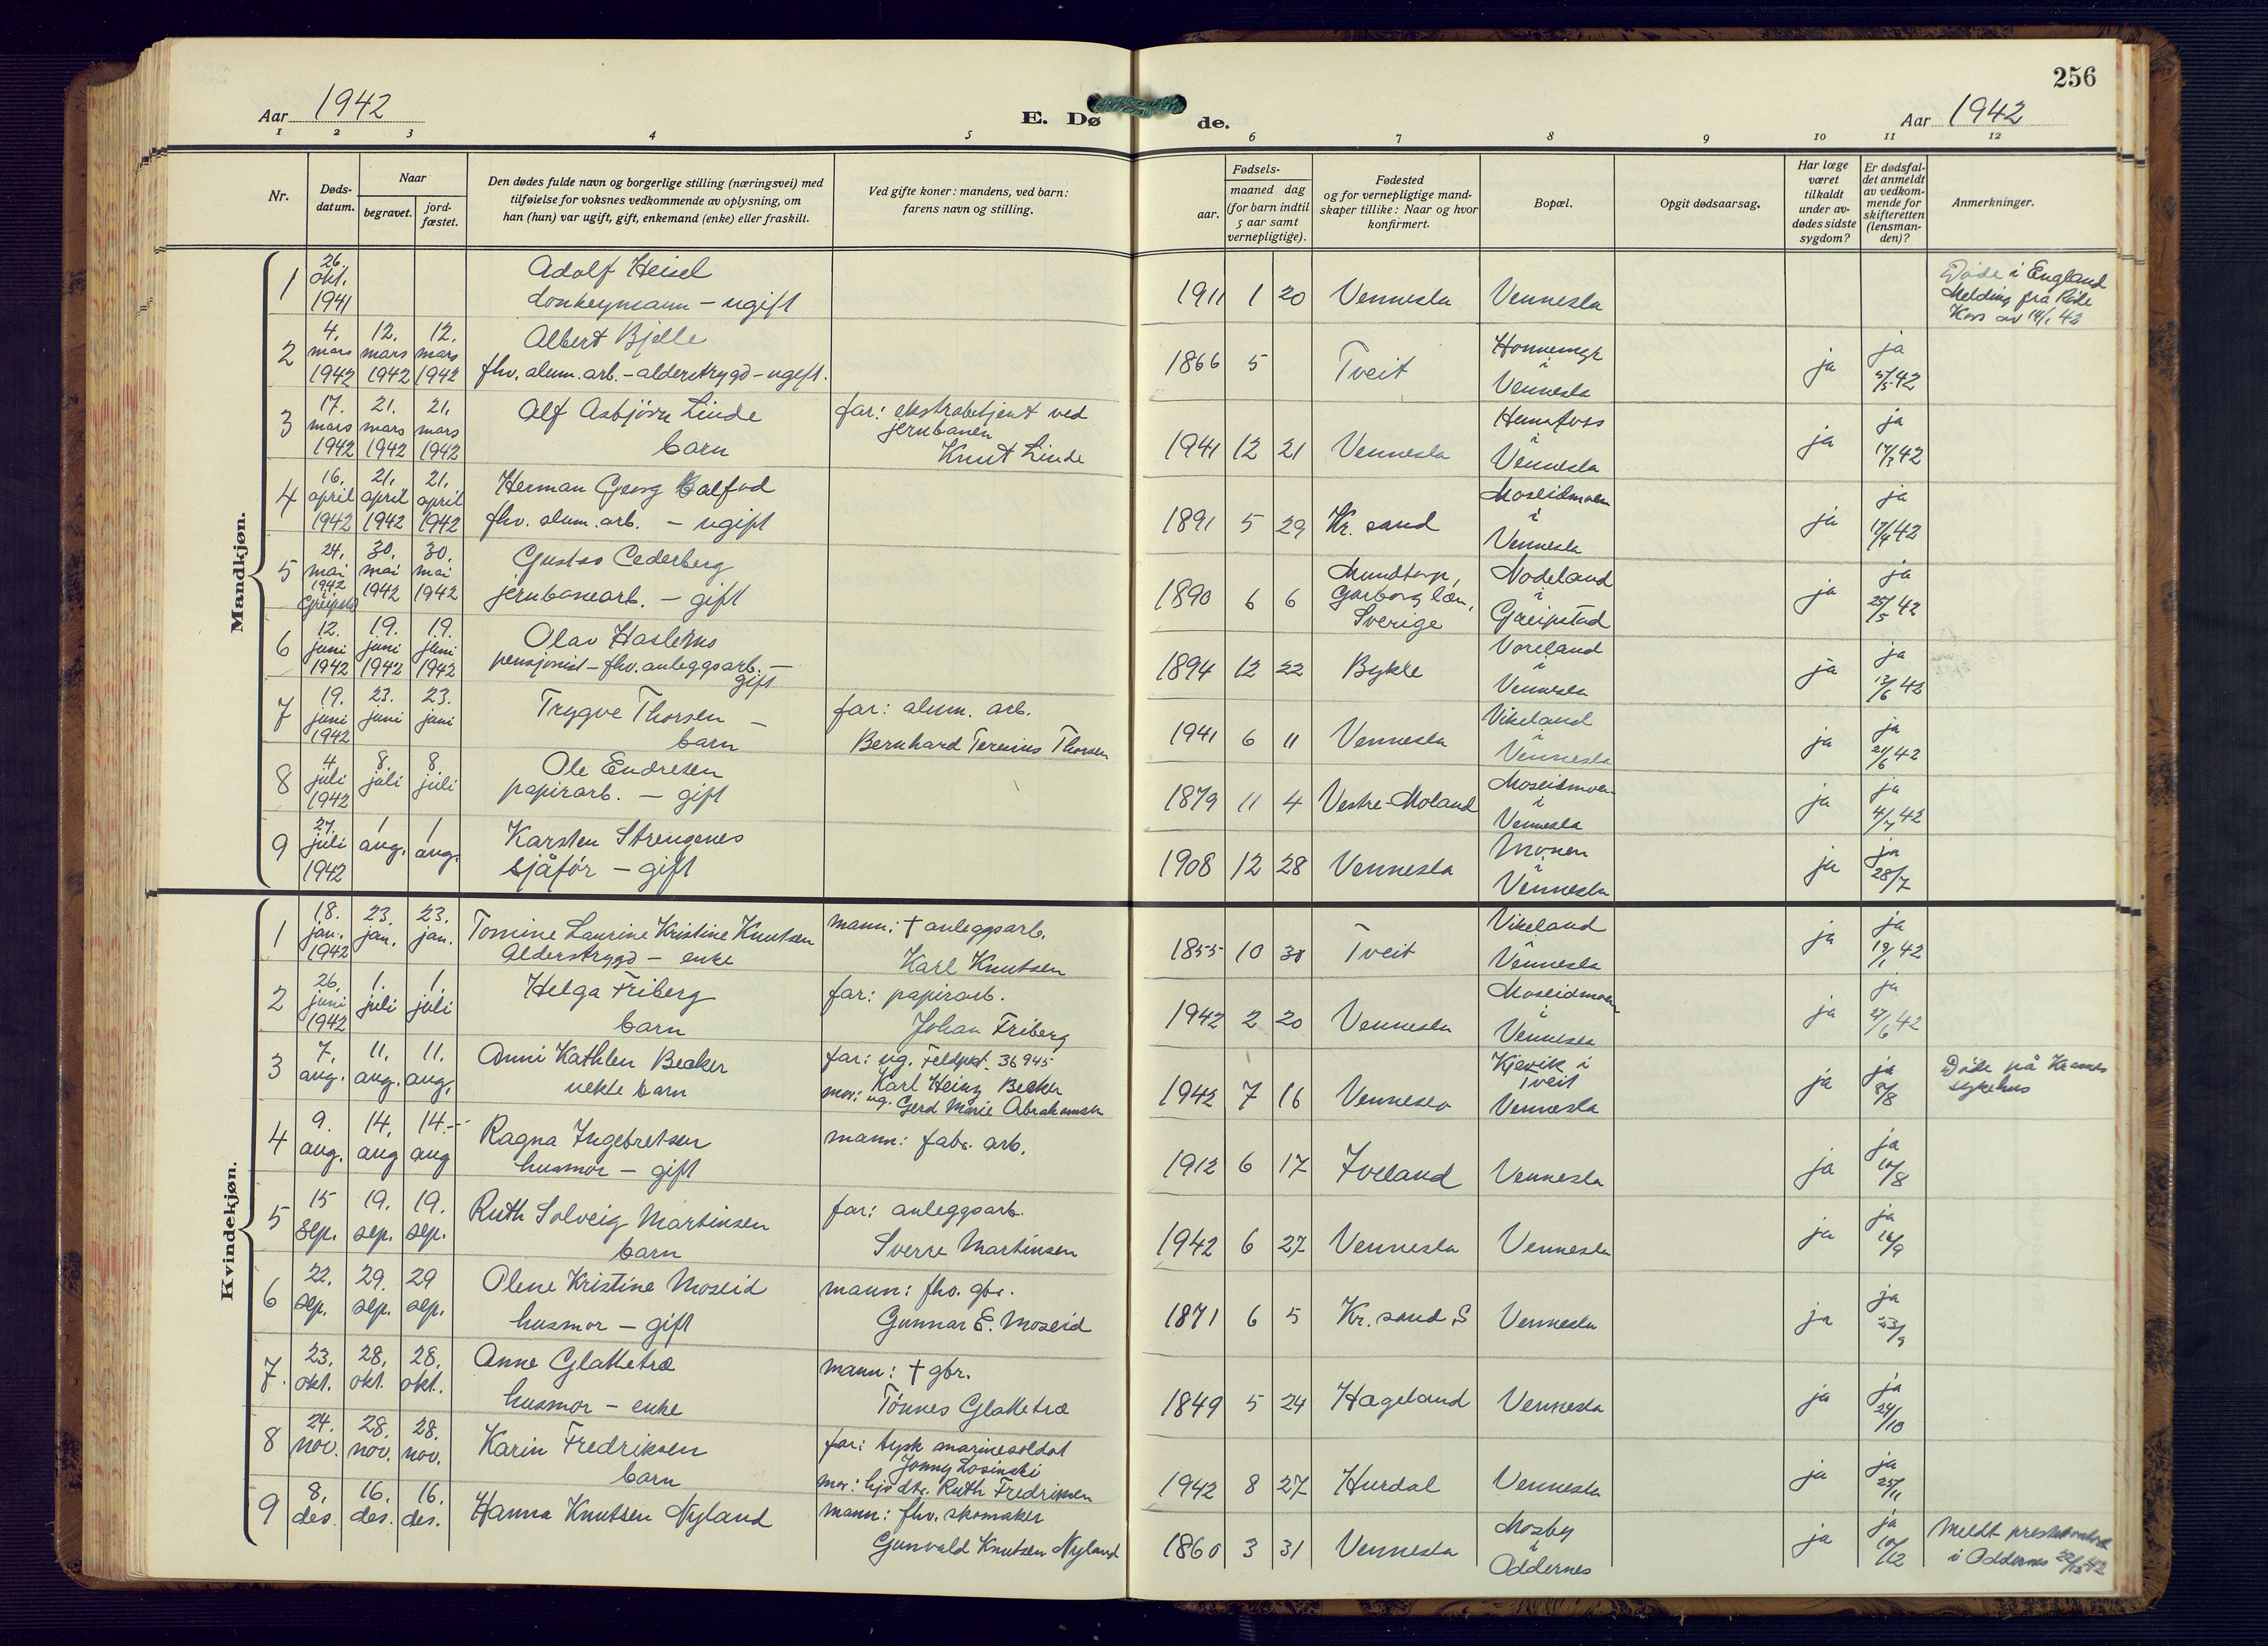 256
Aar 1942
E. Dø de.
Aar 1942
1 2 3 4 5 6 7 8 9 10 11 12
Nr.
Døds-
datum.
Naar
begravet.
jord-
fæstet.
Den dødes fulde navn og borgerlige stilling (næringsvei) med
tilføielse for voksnes vedkommende av oplysning, om
han (hun) var ugift, gift, enkemand (enke) eller fraskilt.
Ved gifte koner: mandens, ved barn:
farens navn og stilling.
Fødsels-
aar.
maaned dag
(for barn indtil
5 aar samt
vernepligtige).
Fødested
og for vernepligtige mand-
skaper tillike: Naar og hvor
konfirmert.
Bopæl.
Opgit dødsaarsag.
Har læge
været
tilkaldt
under av-
dødes sidste
sygdom?
Er dødsfal-
det anmeldt
av vedkom-
mende for
skifteretten
(lensman-
den)?
Anmerkninger.
Mandkjøn.
1 26. okt. 1941
Adolf Heisel
donkeymann – ugift
1911 1 20 Vennesla Vennesla
Døde i England
Melding fra Røde
Kors av 14/1 42
2 4. mars 1942 12. mars 1942 12. mars 1942
Albert Bjelle
fhv. alum. arb. – alderstrygd – ugift.
1866 5 Tveit
i Vennesla
ja ja
3 17. mars 1942 21. mars 1942 21. mars 1942
Alf Asbjørn Linde
barn
far: ekstrabetjent ved
jernbanen
Knut Linde
1941 12 21 Vennesla
Hunsfoss i Vennesla
ja ja 17/3 42
4 16. april 1942 21. april 1942 21. april 1942
Herman Georg Kalfod
fhv. alum. arb. – ugift
1891 5 29 Kr. sand
Moseidmoen i Vennesla
ja ja 17/4 42
5 24. mai 1942 i Greipstad 30. mai 1942 30. mai 1942
Gustav Cederberg
jernbanearb. – gift
1890 6 6
Sverige
Nodeland i Greipstad
ja ja 25/5 42
6 12. juni 1942 19. juni 1942 19. juni 1942
Olav Haslemo
pensjonist – fhv. anleggsarb. –
gift
1894 12 22 Bykle
Voreland i Vennesla
ja ja 13/6 42
7 19. juni 1942 23. juni 23. juni
Trygve Thorsen –
barn
far: alum. arb.
Bernhard Terenius Thorsen
1941 6 11 Vennesla
Vikeland i Vennesla
ja ja 21/6 42
8 4. juli 1942 8. juli 8. juli
Ole Endresen
papirarb. – gift
1879 11 4 Vestre-Moland
Moseidmoen i Vennesla
ja ja 4/7 42
9 27. juli 1942 1 aug. 1 aug.
Karsten Strengenes
sjåfør – gift
1908 12 28 Vennesla
Monen i Vennesla
ja ja 28/7
Kvindekjøn.
1 18. jan. 1942 23. jan. 23. jan.
Tomine Laurine Kristine Knutsen
Alderstrygd – enke
mann: † anleggsarb.
Karl Knutsen
1855 10 30 Tveit
Vikeland i Vennesla
ja ja 19/1 42
2 26. juni 1942 1. juli 1. juli
Helga Friberg
barn
far: papirarb.
Johan Friberg
1942 2 20 Vennesla
Moseidmoen i Vennesla
ja ja 27/6 42
3 7. aug. 11. aug. 11. aug.
Anni Kathlen Becker
uekte barn
far: ug. Feldpost. 36945
Karl Heinz Becker
mor: ug. Gerd Marie Abrahamsen
1942 7 16 Vennesla
Kjevik i Tveit
Vennesla
ja ja 8/8
Døde på
sykehus
4 9. aug. 14. aug 14. aug
Ragna Ingebretsen
husmor – gift
mann: fabr. arb.
1912 6 17 Iveland Vennesla
ja ja 10/8
5 15 sep. 19. sep. 19. sep.
Ruth Solveig Martinsen
barn
far: anleggsarb.
Sverre Martinsen
1942 6 27 Vennesla Vennesla
ja ja 16/9
6 22. sep. 29. sep. 29 sep.
Olene Kristine Moseid
husmor – gift
mann: fhv. gbr.
Gunnar E. Moseid
1871 6 5 Kr. sand S Vennesla
ja ja 23/9
7. 23. okt. 28. okt. 28. okt.
Anne Glattetræ
husmor – enke
mann: † gbr.
Tønnes Glattetræ
1849 5 24 Hægeland Vennesla
ja ja 24/10
8 24. nov. 28. nov. 28. nov.
Karin Fredriksen
barn
far: tysk marinesoldat
Jonny Losinski
mor: hj.v. dtr. Ruth Fredriksen
1942 8 27 Hurdal Vennesla
ja ja 25/11
9 8. des. 16. des. 16. des.
Hanna Knutsen Nyland
mann: fhv. skomaker
Gunvald Knutsen Nyland
1860 3 31 Vennesla
Mosby i Oddernes
ja ja 10/12
Meldt
i Oddernes 22/12 42